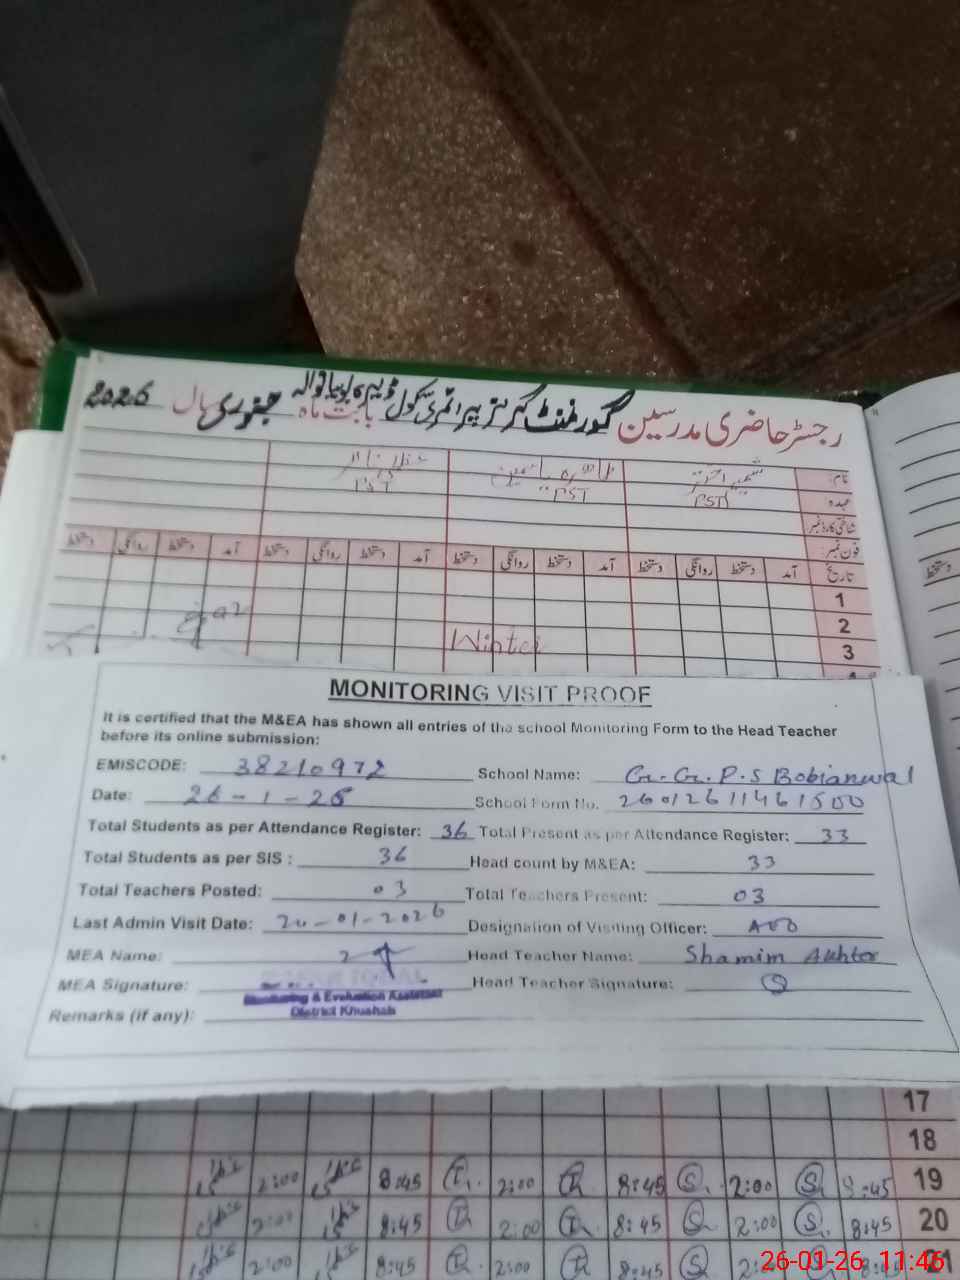 رجسٹر حاضری مدرسین گورنمنٹ گرلز پرائمری سکول ڈیرہ بوبیانوالہ بابت ماہ جنوری سال 2026
نام: شمیم اختر طاہرہ یاسمین
عہدہ PST PST PST
شناختی کارڈ نمبر
فون نمبر:
تاریخ آمد دستخط روانگی دستخط آمد دستخط روانگی دستخط آمد دستخط روانگی دستخط آمد دستخط روانگی دستخط
دستخط
1
2
3 Winter
MONITORING VISIT PROOF
It is certified that the M&EA has shown all entries of the school Monitoring Form to the Head Teacher
before its online submission:
EMISCODE: 38210972 School Name: G.G.P.S Bobianwal
Date: 26-1-26 School Form No. 26012611461500
Total Students as per Attendance Register: 36 Total Present as per Attendance Register: 33
Total Students as per SIS : 36 Head count by M&EA: 33
Total Teachers Posted: 03 Total Teachers Present: 03
Last Admin Visit Date: 20-01-2026 Designation of Visiting Officer: AEO
MEA Name: Head Teacher Name: Shamim Akhter
MEA Signature: Head Teacher Signature: S
Monitoring & Evaluation Assistant
District Khushab
Remarks (if any):
17
18
19 8:45 S 2:00 S 8:45 2:00 8:45 2:00
20 8:45 S 2:00 S 8:45 2:00 8:45 2:00
21 S 2:00 S 8:45 2:00 8:45 2:00
26-01-26 11:46